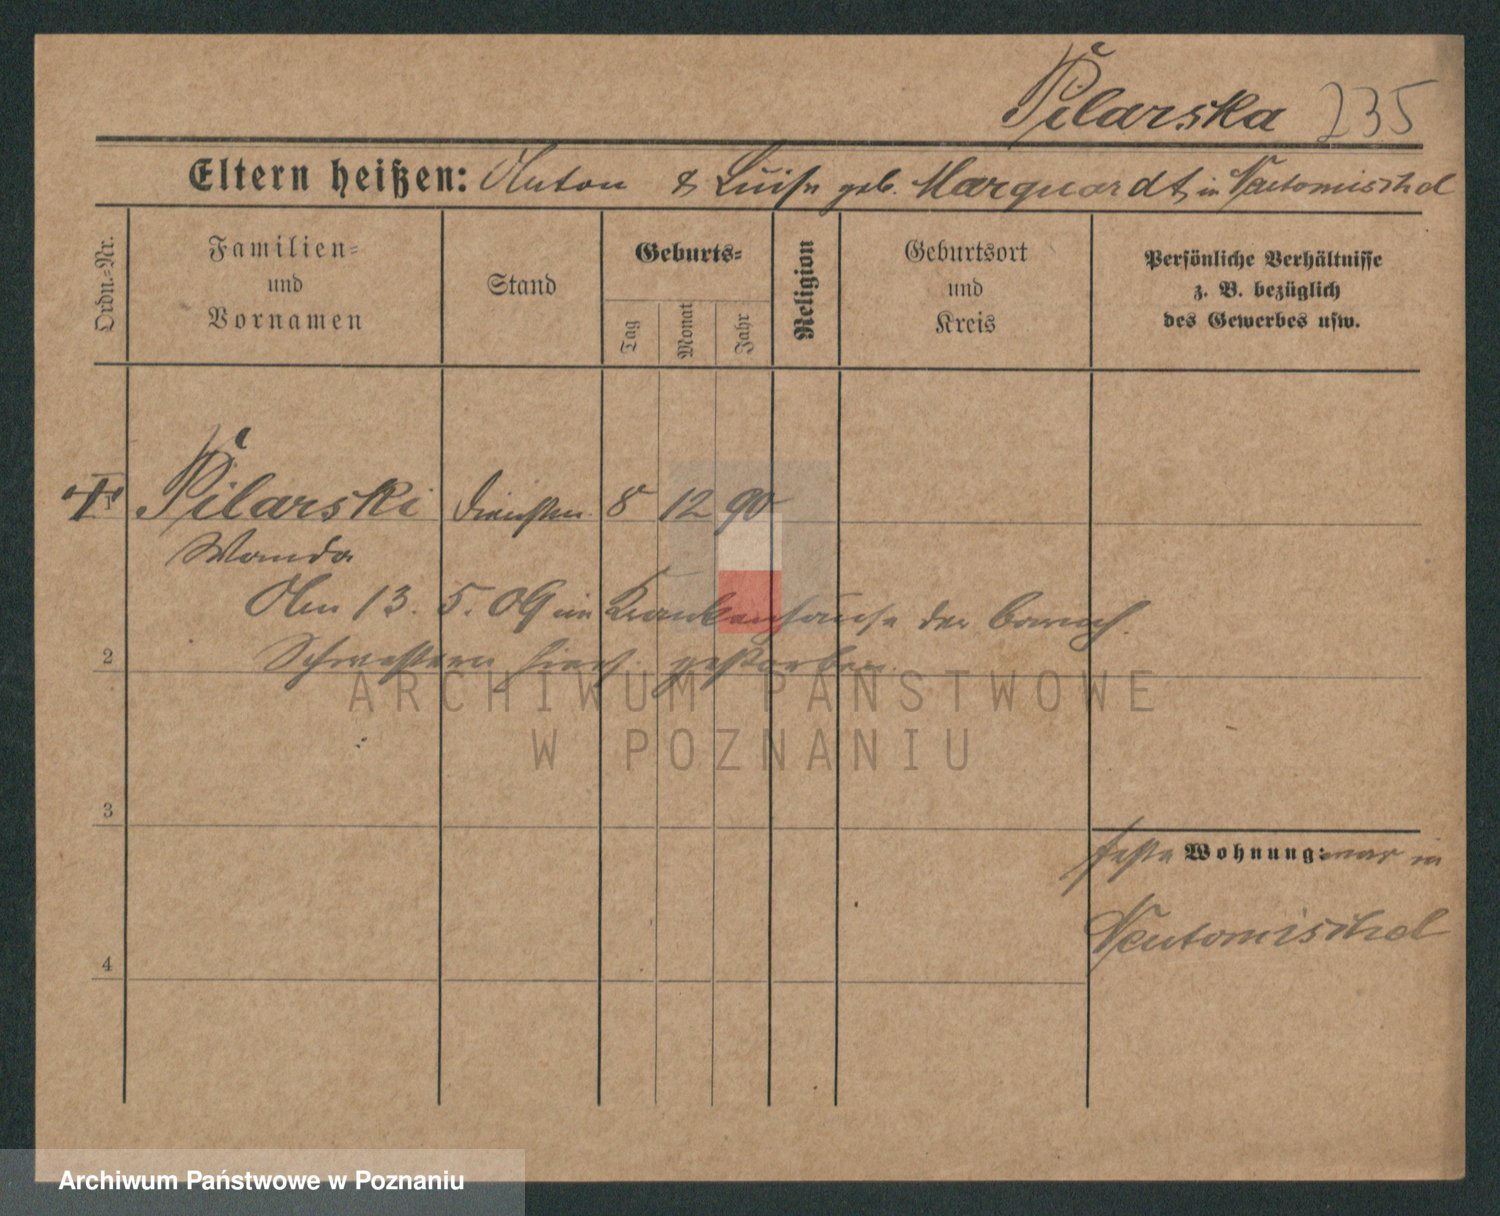 Pilarska 235
Eltern heißen: Anton & Luise geb. Marquardt, in Neutomischel
Ordn.-Nr.
Familien-
und
Vornamen
Stand
Geburts-
Tag
Monat
Jahr
Religion
Geburtsort
und
Kreis
Persönliche Verhältnisse
z. B. bezüglich
des Gewerbes usw.
1 Pilarski Dienstm. 8 12 90
Wanda
Am 13. 5. 09 im Krankenhause der barmh.
2 Schwestern hier gestorben.
ARCHIWUM PAŃSTWOWE
W POZNANIU
3
feste Wohnung: war in
Neutomischel
4
Archiwum Państwowe w Poznaniu